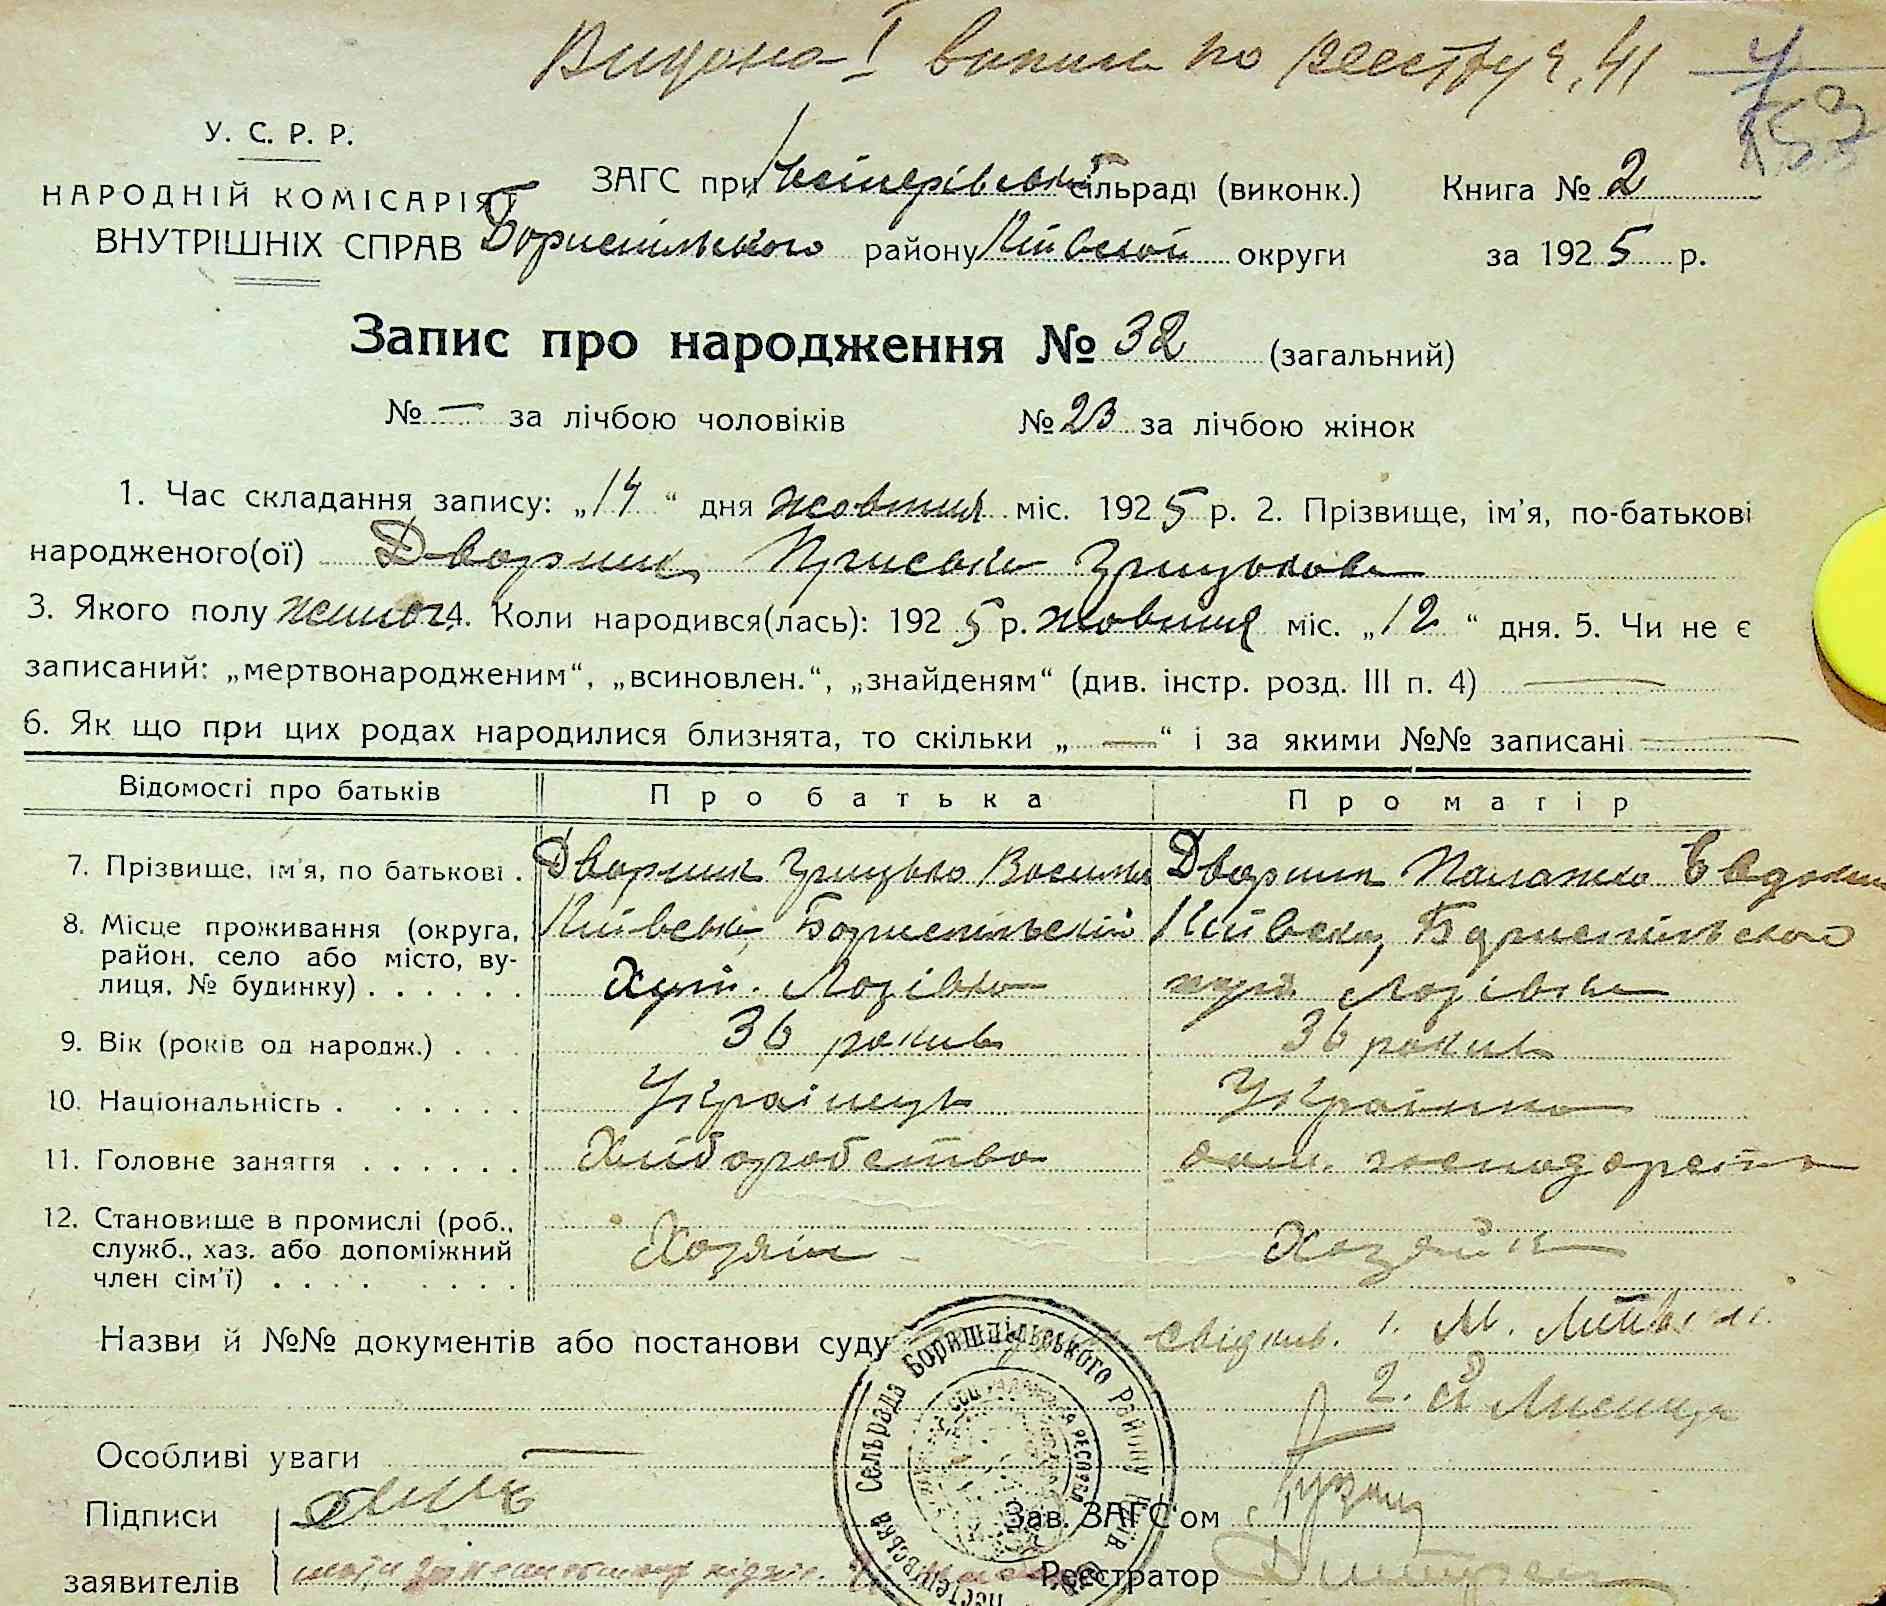 Видана I випис по реєстру ч. 41
У. С. Р. Р.
НАРОДНІЙ КОМІСАРІЯТ
ВНУТРІШНІХ СПРАВ
ЗАГС при сільраді (виконк.) Книга № 2
Бориспільського району Київської округи за 1925 р.
Запис про народження № 32 (загальний)
№ — за лічбою чоловіків № 23 за лічбою жінок
1. Час складання запису: „14“ дня жовтня міс. 1925 р. 2. Прізвище, ім'я, по-батькові
народженого(ої) Дворник Приська Грицькова
3. Якого полу жіноч. 4. Коли народився(лась): 1925 р. жовтня міс. „12“ дня. 5. Чи не є
записаний: „мертвонародженим“, „всиновлен.“, „знайденям“ (див. інстр. розд. III п. 4) —
6. Як що при цих родах народилися близнята, то скільки „—“ і за якими №№ записані —
Відомості про батьків Про батька Про матір
7. Прізвище, ім'я, по батькові . Дворник Грицько Дворник Палажка Євдоким
8. Місце проживання (округа, Київська, Бориспільский Київска, Бориспільского
район, село або місто, ву-
лиця, № будинку) . . . . . . Хут. Лозівка хут. Лозівка
9. Вік (років од народж.) . . . 36 рокив 36 рокив
10. Національність . . . . . . Українець Українка
11. Головне заняття . . . . . . Хліборобство дом. господарств
12. Становище в промислі (роб.,
служб., хаз. або допоміжний Хозяін Хазяйка
член сім'ї) . . . . . . . .
Назви й №№ документів або постанови суду свідків. 1. М.
2. Лисиця
Особливі уваги —
Підписи Зав. ЗАГС'ом
заявителів Реєстратор
Сельрада Боришпільського Району Київ